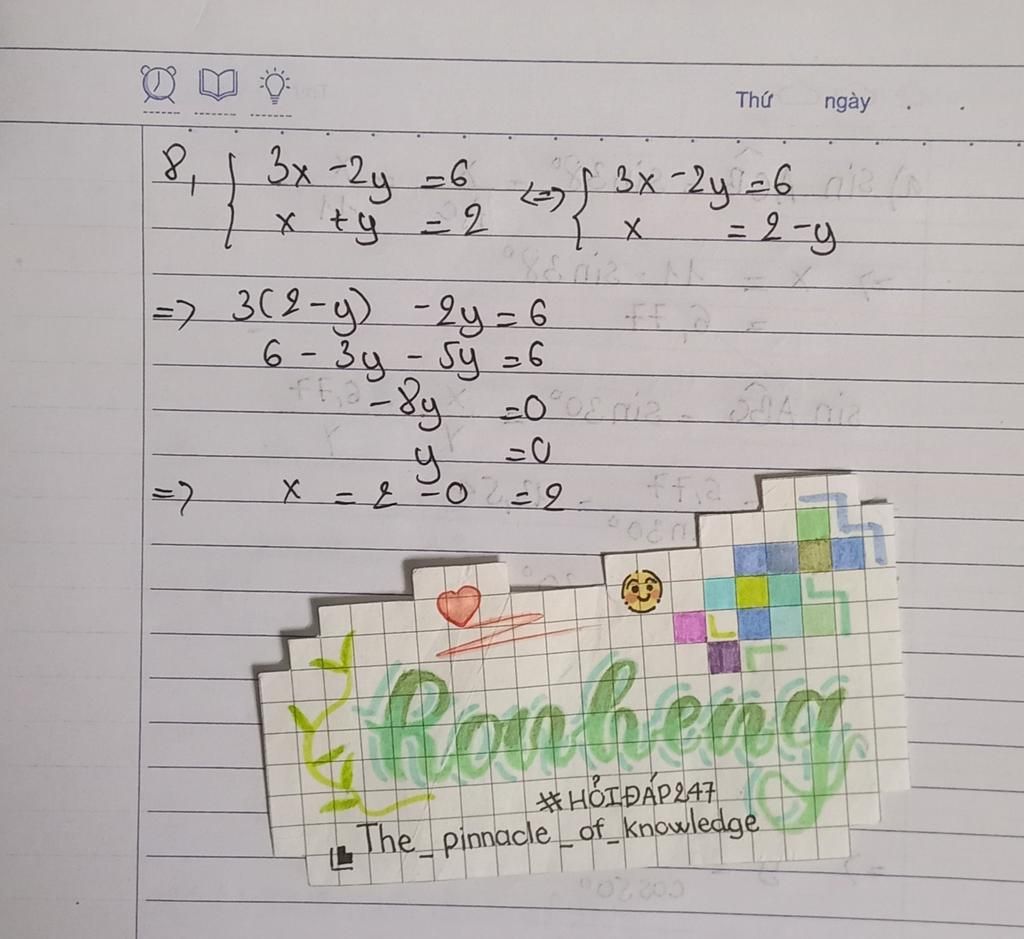 Thứ ngày . .
8, { 3x - 2y = 6 <=> { 3x - 2y = 6
x + y = 2 x = 2 - y
=> 3(2 - y) - 2y = 6
6 - 3y - 5y = 6
- 8y = 0
y = 0
=> x = 2 - 0 = 2
Ronheng
#HỎIĐÁP247
The_pinnacle_of_knowledge